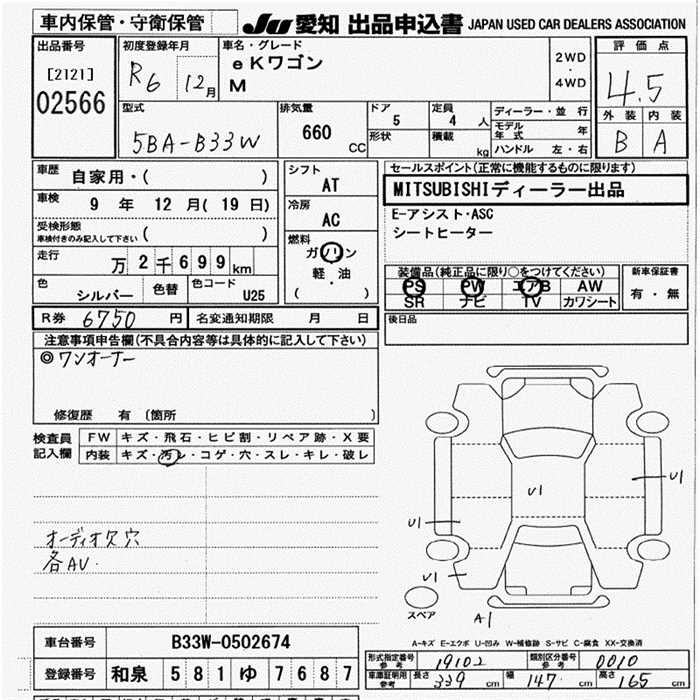 車内保管・守衛保管
JU 愛知 出品申込書 JAPAN USED CAR DEALERS ASSOCIATION
出品番号
[2121]
02566
初度登録年月
R6 12月
車名・グレード
eKワゴン
M
2WD
・
4WD
評価点
4.5
外装 内装
B A
型式
5BA-B33W
排気量
660 CC
ドア
5
形状
定員
4 人
積載
kg
ディーラー・並行
モデル年式 年
ハンドル 左・右
車歴
自家用・( )
車検
9 年 12 月( 19 日)
受検形態
車検付きのみ記入して下さい ( )
走行
万 2 千 6 9 9 km
色
シルバー
色替
色コード
U25
シフト
AT
冷房
AC
燃料
ガソリン
軽・油
( )
セールスポイント(正常に機能するものに限ります)
MITSUBISHIディーラー出品
E-アシスト・ASC
シートヒーター
装備品(純正品に限り○をつけてください)
PS PW エアB AW
SR ナビ TV カワシート
新車保証書
有・無
R券 6750 円
名変通知期限 月 日
後日品
注意事項申告欄(不具合内容等は具体的に記入して下さい)
◎ワンオーナー
修復歴 有 〔箇所 〕
検査員
記入欄
FW キズ・飛石・ヒビ割・リペア跡・X要
内装 キズ・汚レ・コゲ・穴・スレ・キレ・破レ
オーディオ欠穴
各AU
U1
U1
U1
U1
A1
スペア
A-キズ E-エクボ U-凹み W-補修跡 S-サビ C-腐食 XX-交換済
車台番号 B33W-0502674
登録番号 和泉 5 8 1 ゆ 7 6 8 7
型式指定番号
参考
19102
類別区分番号
参考
0010
車庫証明用
参考
長さ 339 cm 幅 147 cm 高さ 165 cm